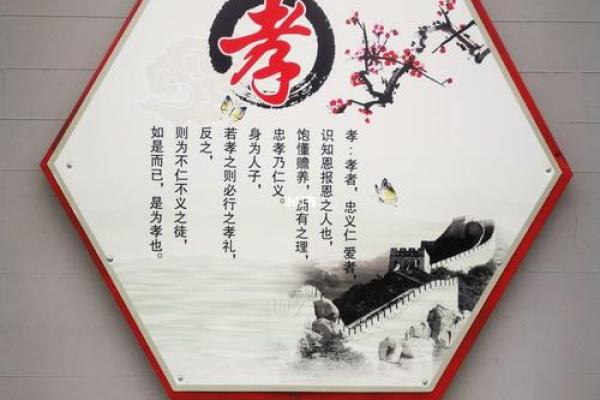 孝
孝：孝者，忠义仁爱者，
识知恩报恩之人也，
饱懂赡养，所有之理，
忠孝乃仁义。
身为人子，
若孝之则必行之孝礼，
反之，
则为不仁不义之徒，
如是而已，是为孝也。